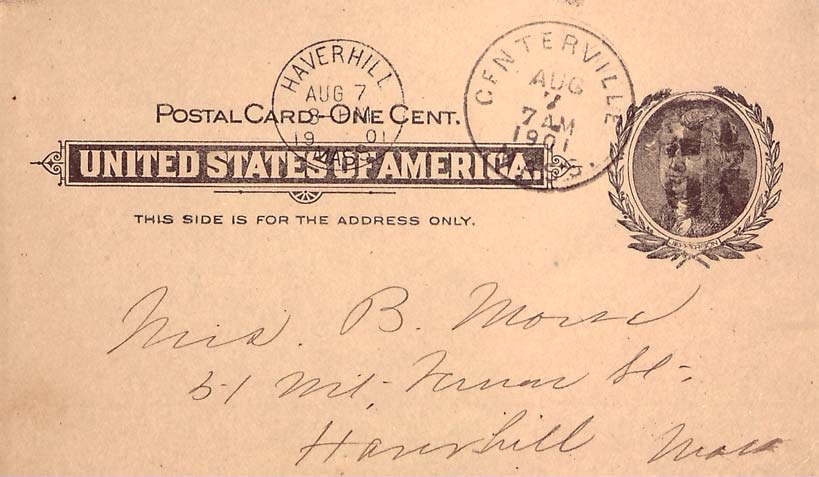 HAVERHILL
AUG 7
8 PM
19 01
MASS.
CENTERVILLE
AUG
7
7 AM
1901
MASS.
POSTAL CARD—ONE CENT.
UNITED STATES OF AMERICA.
THIS SIDE IS FOR THE ADDRESS ONLY.
JEFFERSON
Mrs. B. Morse
51 Mt. Vernon St.
Haverhill Mass